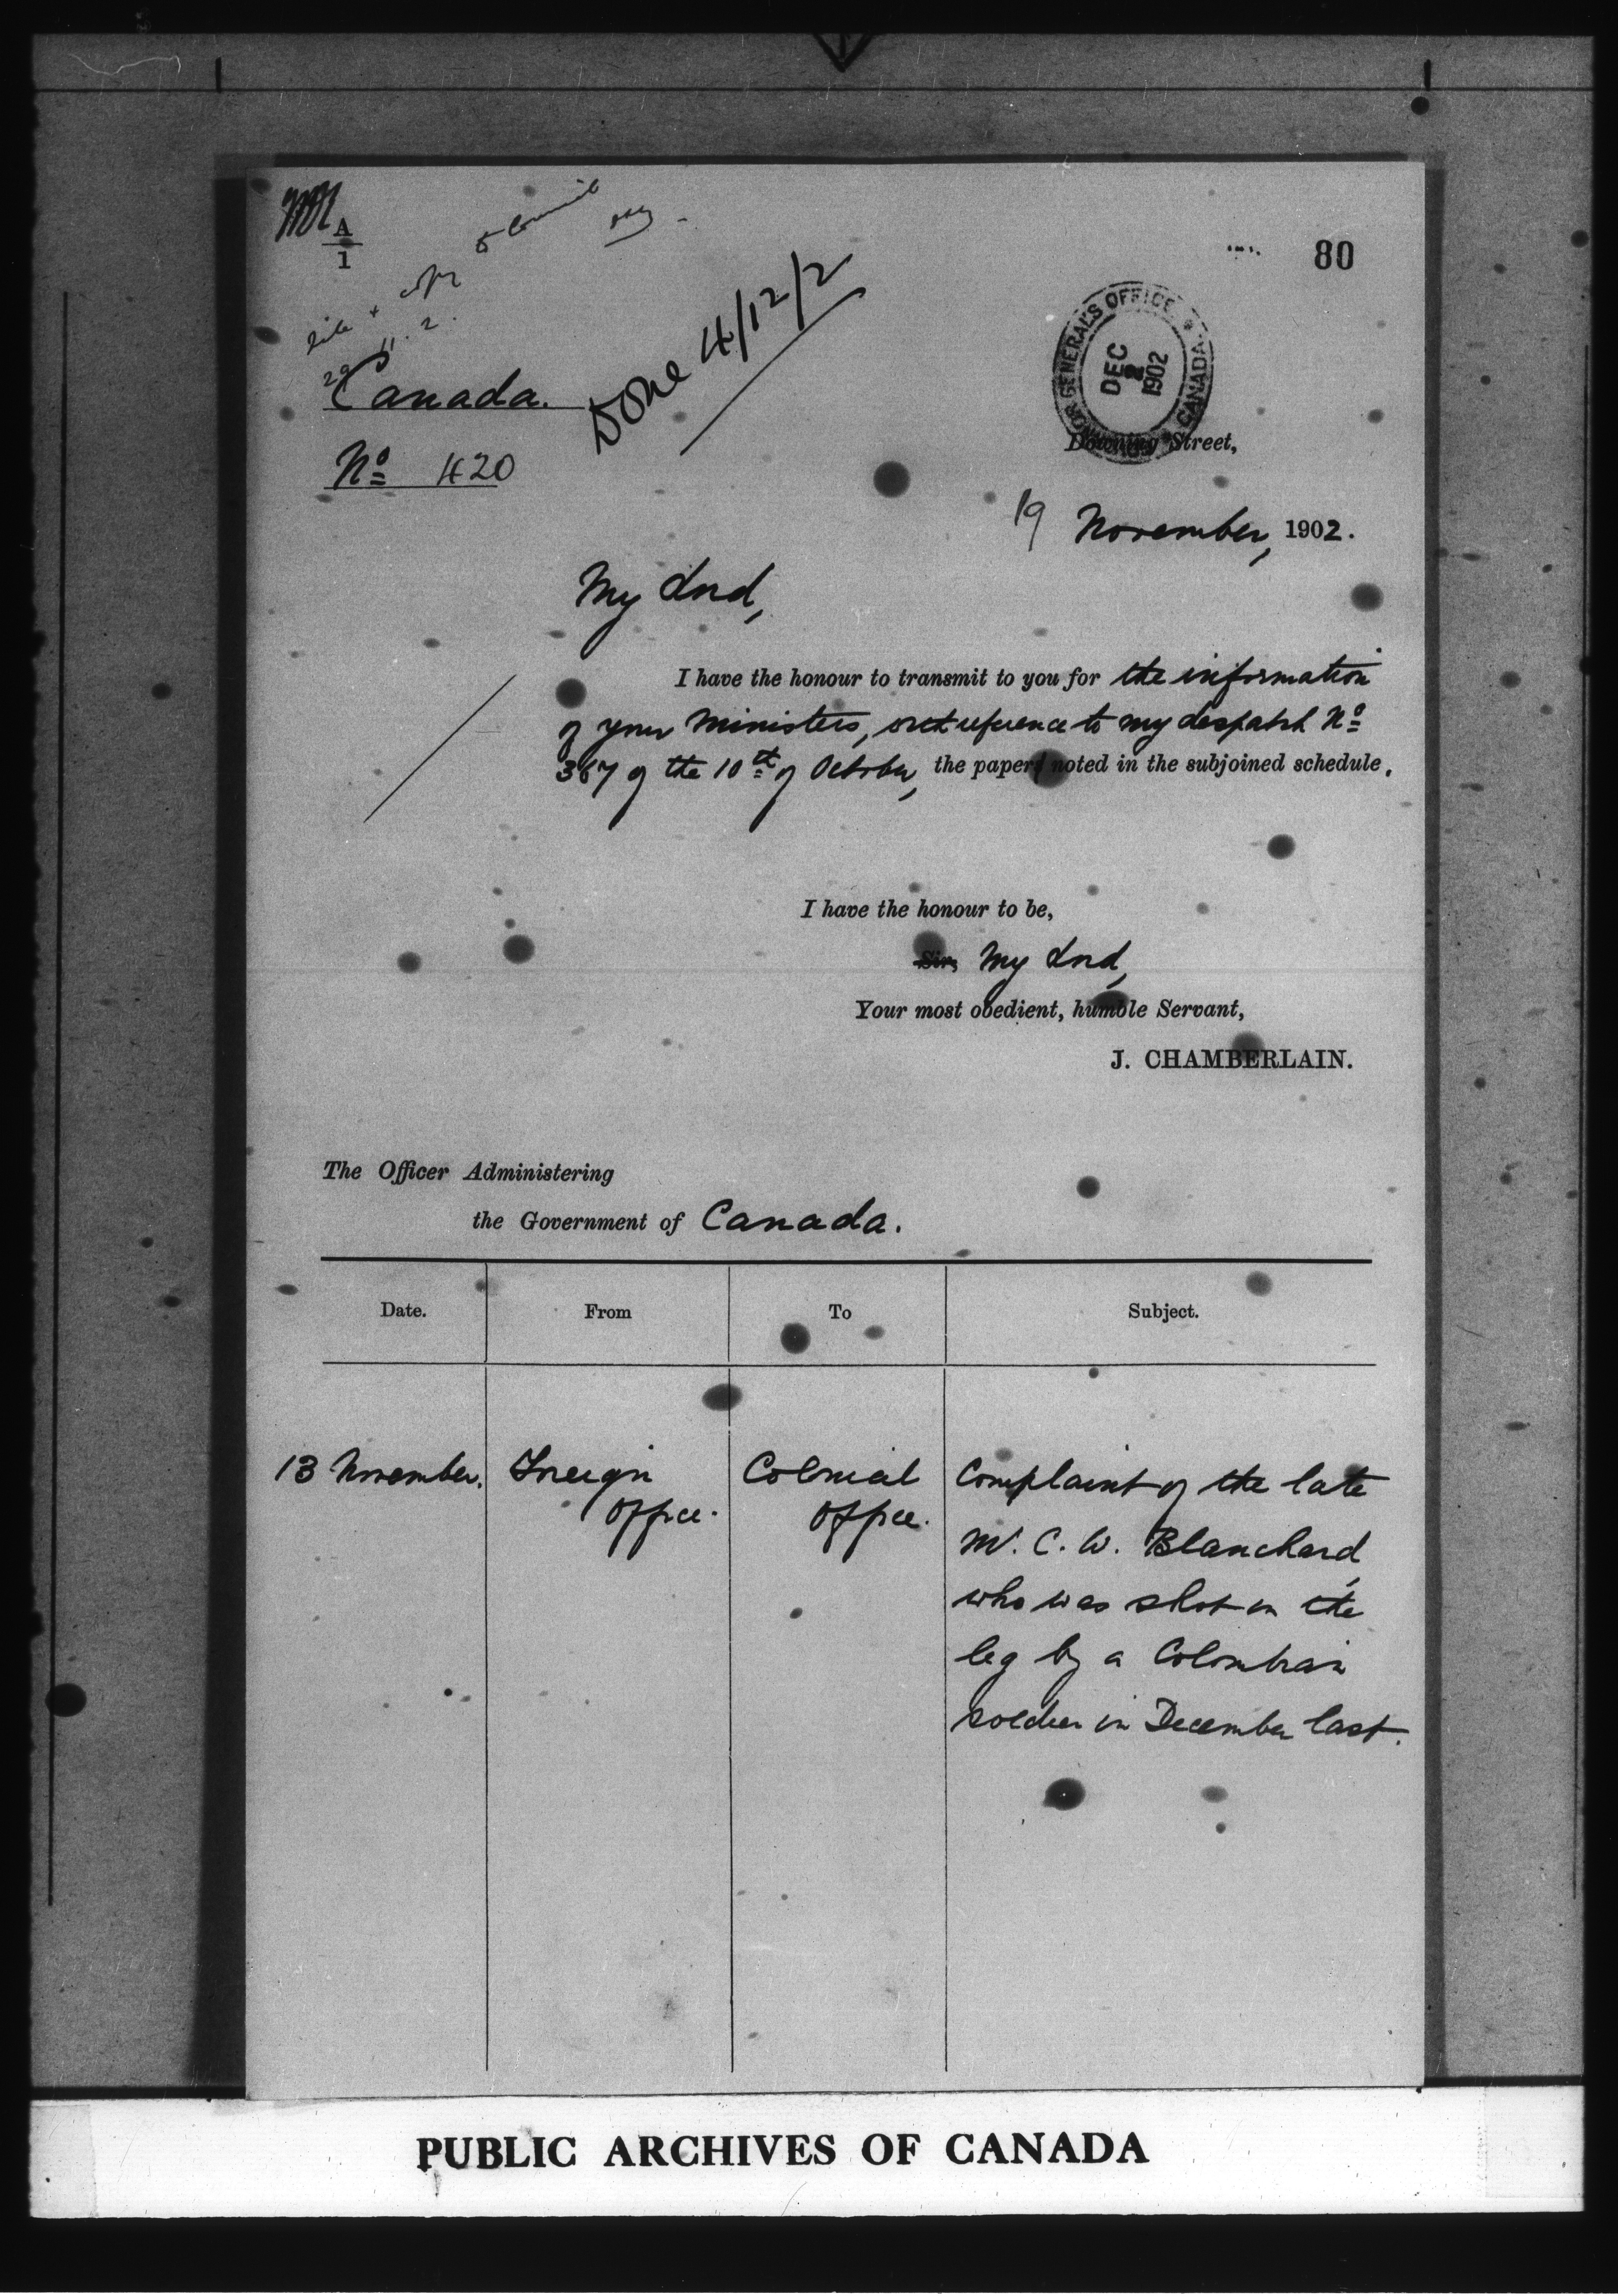 A
1
to Council
80
Done 4/12/2
29 . 11 . 2 .
GOVERNOR GENERAL'S OFFICE
CANADA
DEC
2
1902
Canada.
No 420
Downing Street,
19 November, 1902.
My Lord,
I have the honour to transmit to you for the information
of your Ministers, with reference to my despatch No
367 of the 10th of October, the paper noted in the subjoined schedule.
I have the honour to be,
Sir, My Lord,
Your most obedient, humble Servant,
J. CHAMBERLAIN.
The Officer Administering
the Government of Canada.
Date. From To Subject.
13 November. Foreign Colonial Complaint of the late
Office. Office. Mr. C. W. Blanchard,
who was shot in the
leg by a Colombian
soldier in December last.
PUBLIC ARCHIVES OF CANADA